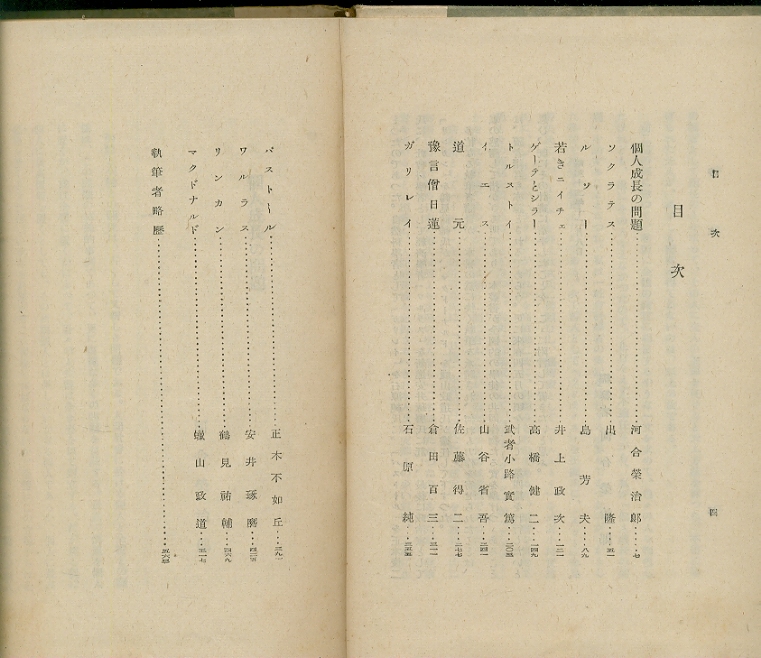 目次
四
目次
個人成長の問題……河合榮治郎……七
ソクラテス……出隆……五一
ルソー……島芳夫……八九
若きニイチェ……井上政次……一二一
ゲーテとシラー……高橋健二……一四九
トルストイ……武者小路實篤……二〇五
イエス……山谷省吾……二四一
道元……佐藤得二……二七七
豫言僧日蓮……倉田百三……三一一
ガリレイ……石原純……三五五
パストール……正木不如丘……三九一
ワルラス……安井琢磨……四二五
リンカン……鶴見祐輔……四六九
マクドナルド……蠟山政道……五一七
執筆者略歴……